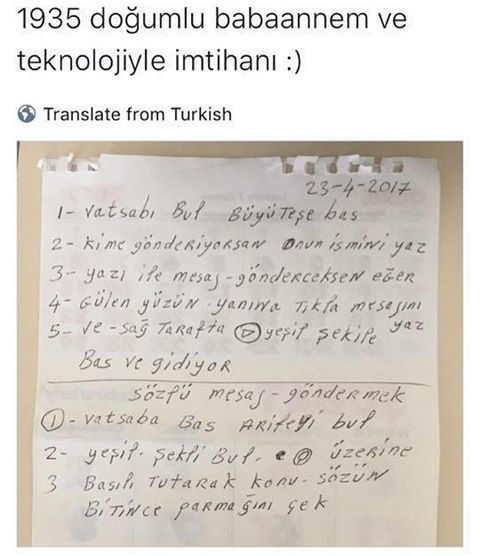 1935 doğumlu babaannem ve
teknolojiyle imtihanı :)
Translate from Turkish
23-4-2017
1- vatsabı Bul BÜYÜTEŞE bas
2- kime gönderiyorsan onun ismini yaz
3- yazı ile mesaj-gönderceksen eğer
4- Gülen yüzün yanına Tıkla mesajını
yaz
5- ve-sağ Tarafta yeşil şekile
Bas ve gidiyor
sözlü mesaj-göndermek
1- vatsaba Bas Arifeyi bul
2- yeşil. Şekli Bul. üzerine
3 Basılı Tutarak konu-sözün
BİTİNCE parmağını çek